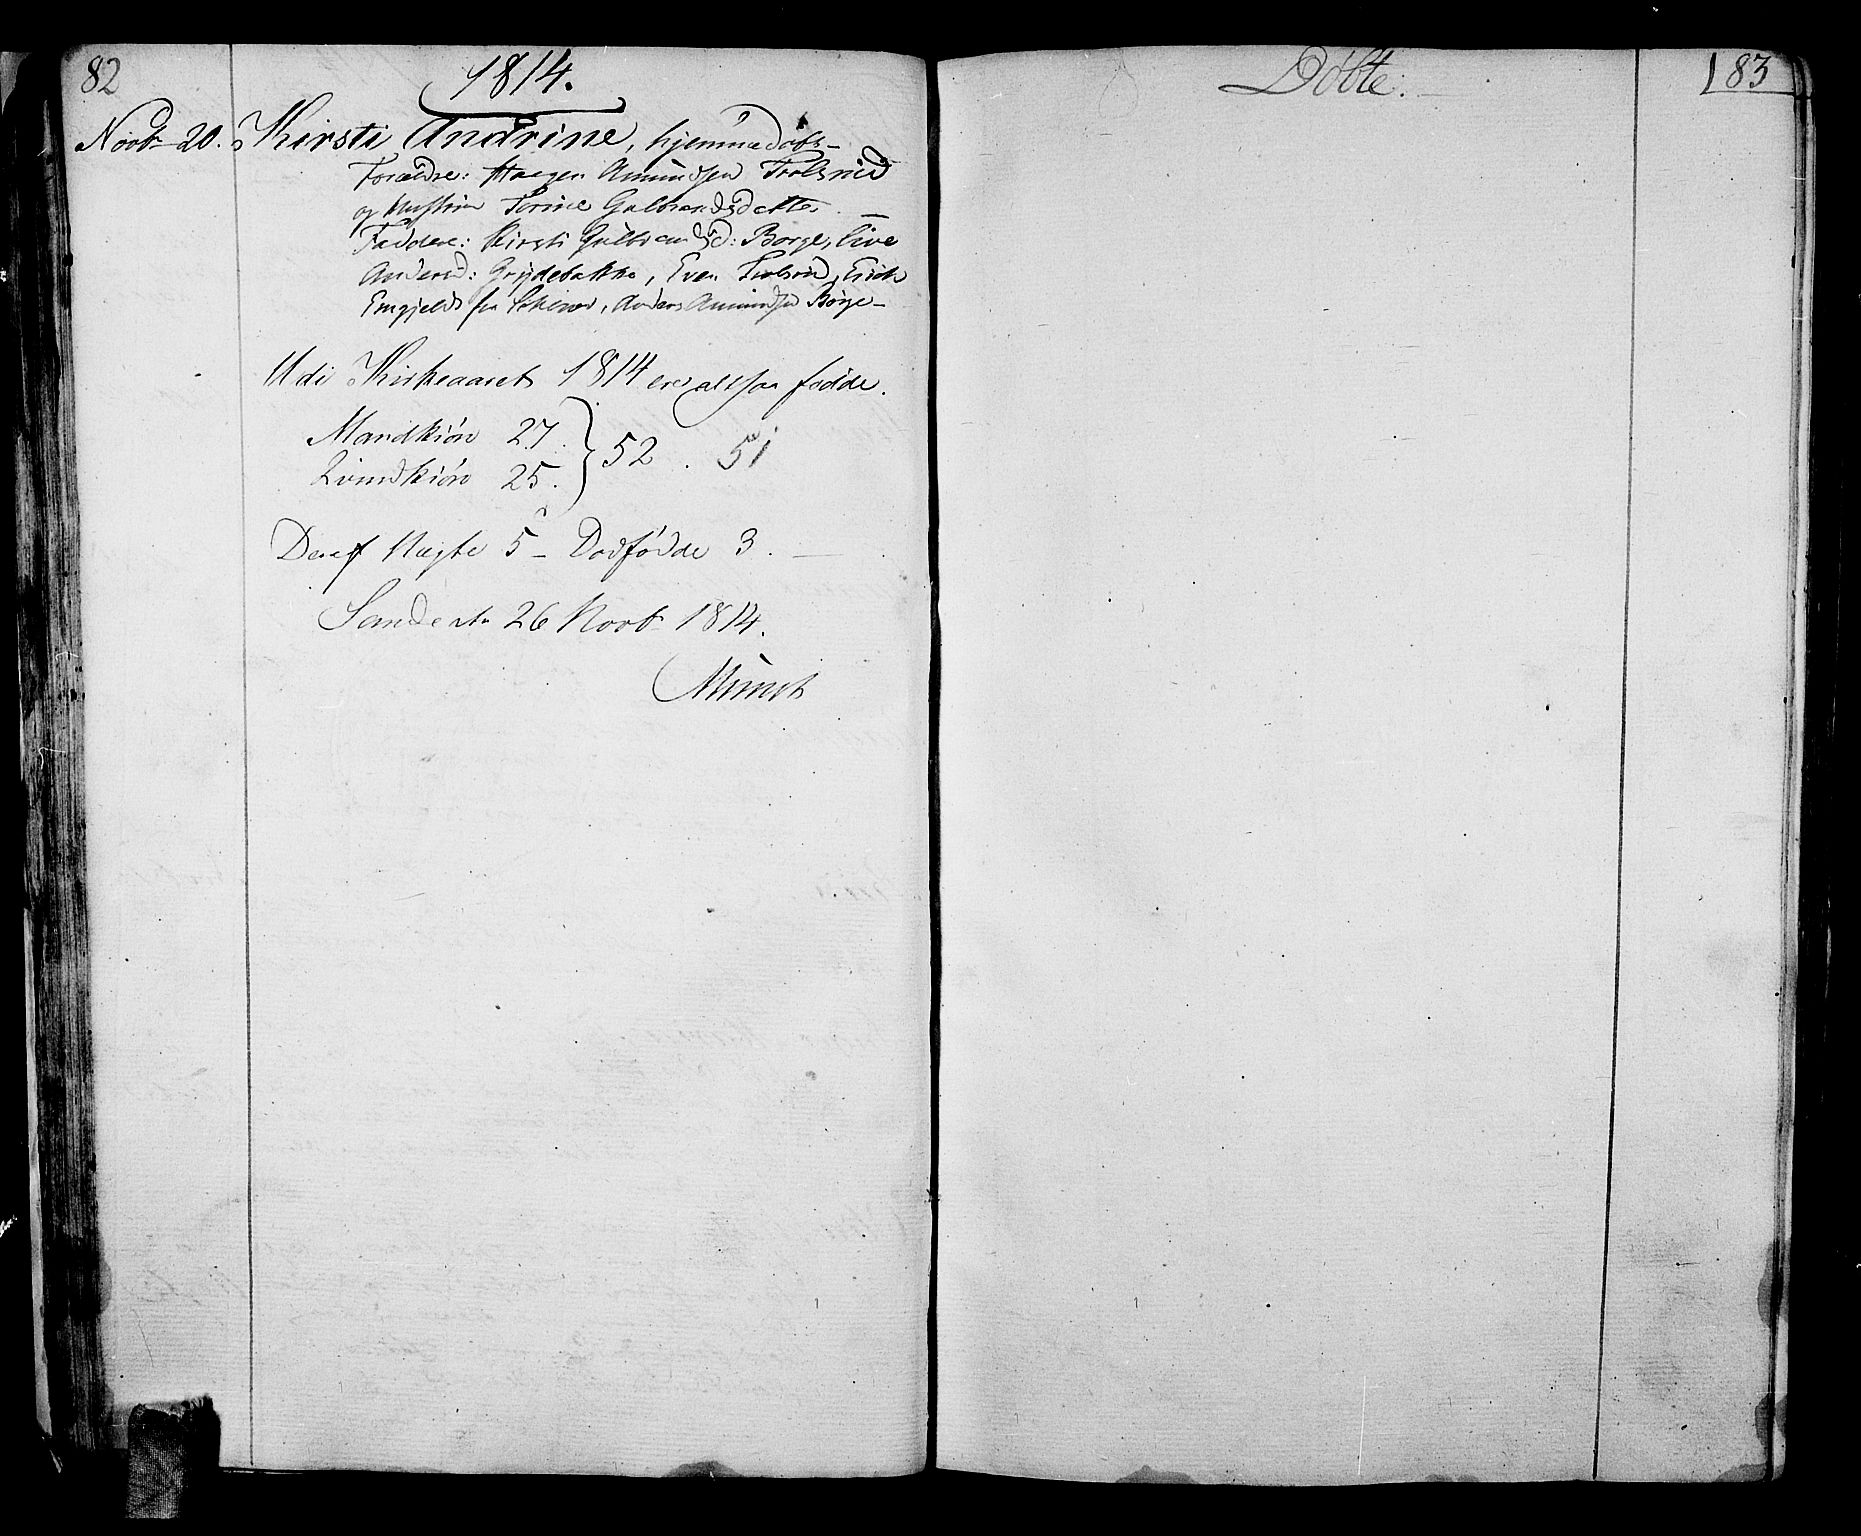 82
1814.
Novbr 20. Kirsti Andrine, hjemmedøbt –
Forældre: Haagen Amundsen Trolsrud
og Hustrue Sørine Gulbrandsdatter. –
Faddere: Kirsti Gulbrandsd: Borge, Live
Andersd: Grydebakke, Even Trolsrud, Erich
fra Anders Amundsen Borge –
Udi Kirkeaaret 1814 ere altsaa fødde.
Mandkiøn 27.
52. 51
Qvindkiøn 25.
Deraf Uægte 5 – Dødfødde 3. –
Sande d. 26 Novbr 1814.
Münch
Døbte.
183